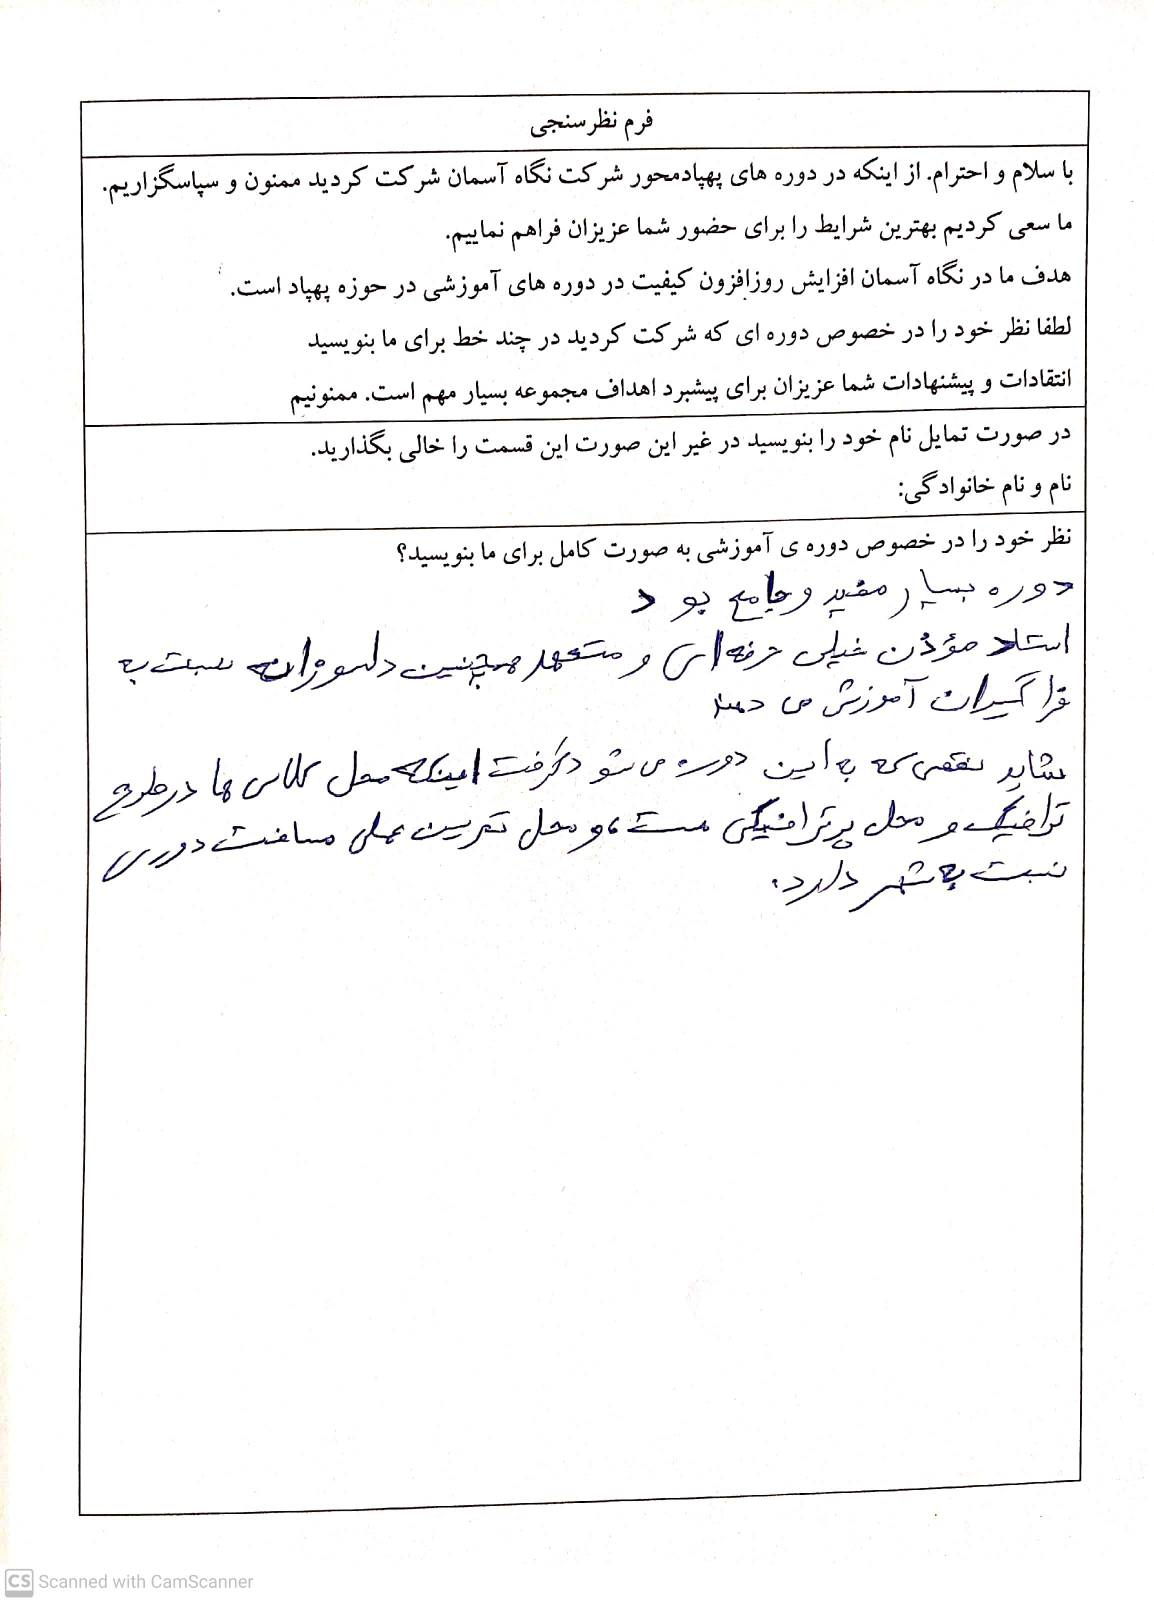 فرم نظرسنجی
با سلام و احترام. از اینکه در دوره های پهپادمحور شرکت نگاه آسمان شرکت کردید ممنون و سپاسگزاریم.
ما سعی کردیم بهترین شرایط را برای حضور شما عزیزان فراهم نماییم.
هدف ما در نگاه آسمان افزایش روزافزون کیفیت در دوره های آموزشی در حوزه پهپاد است.
لطفا نظر خود را در خصوص دوره ای که شرکت کردید در چند خط برای ما بنویسید
انتقادات و پیشنهادات شما عزیزان برای پیشبرد اهداف مجموعه بسیار مهم است. ممنونیم
در صورت تمایل نام خود را بنویسید در غیر این صورت این قسمت را خالی بگذارید.
نام و نام خانوادگی:
نظر خود را در خصوص دوره ی آموزشی به صورت کامل برای ما بنویسید؟
دوره بسیار مفید و جامع بود
استاد مؤذن خیلی حرفه ای و متعهد همچنین دلسوزانه نسبت به
فراگیران آموزش می دهند
شاید نقصی که به این دوره می شود گرفت اینکه محل کلاس ها در طرح
ترافیک و محل پر ترافیکی هست، و محل تمرین عملی مسافت دوری
نسبت به شهر دارد.
CS Scanned with CamScanner